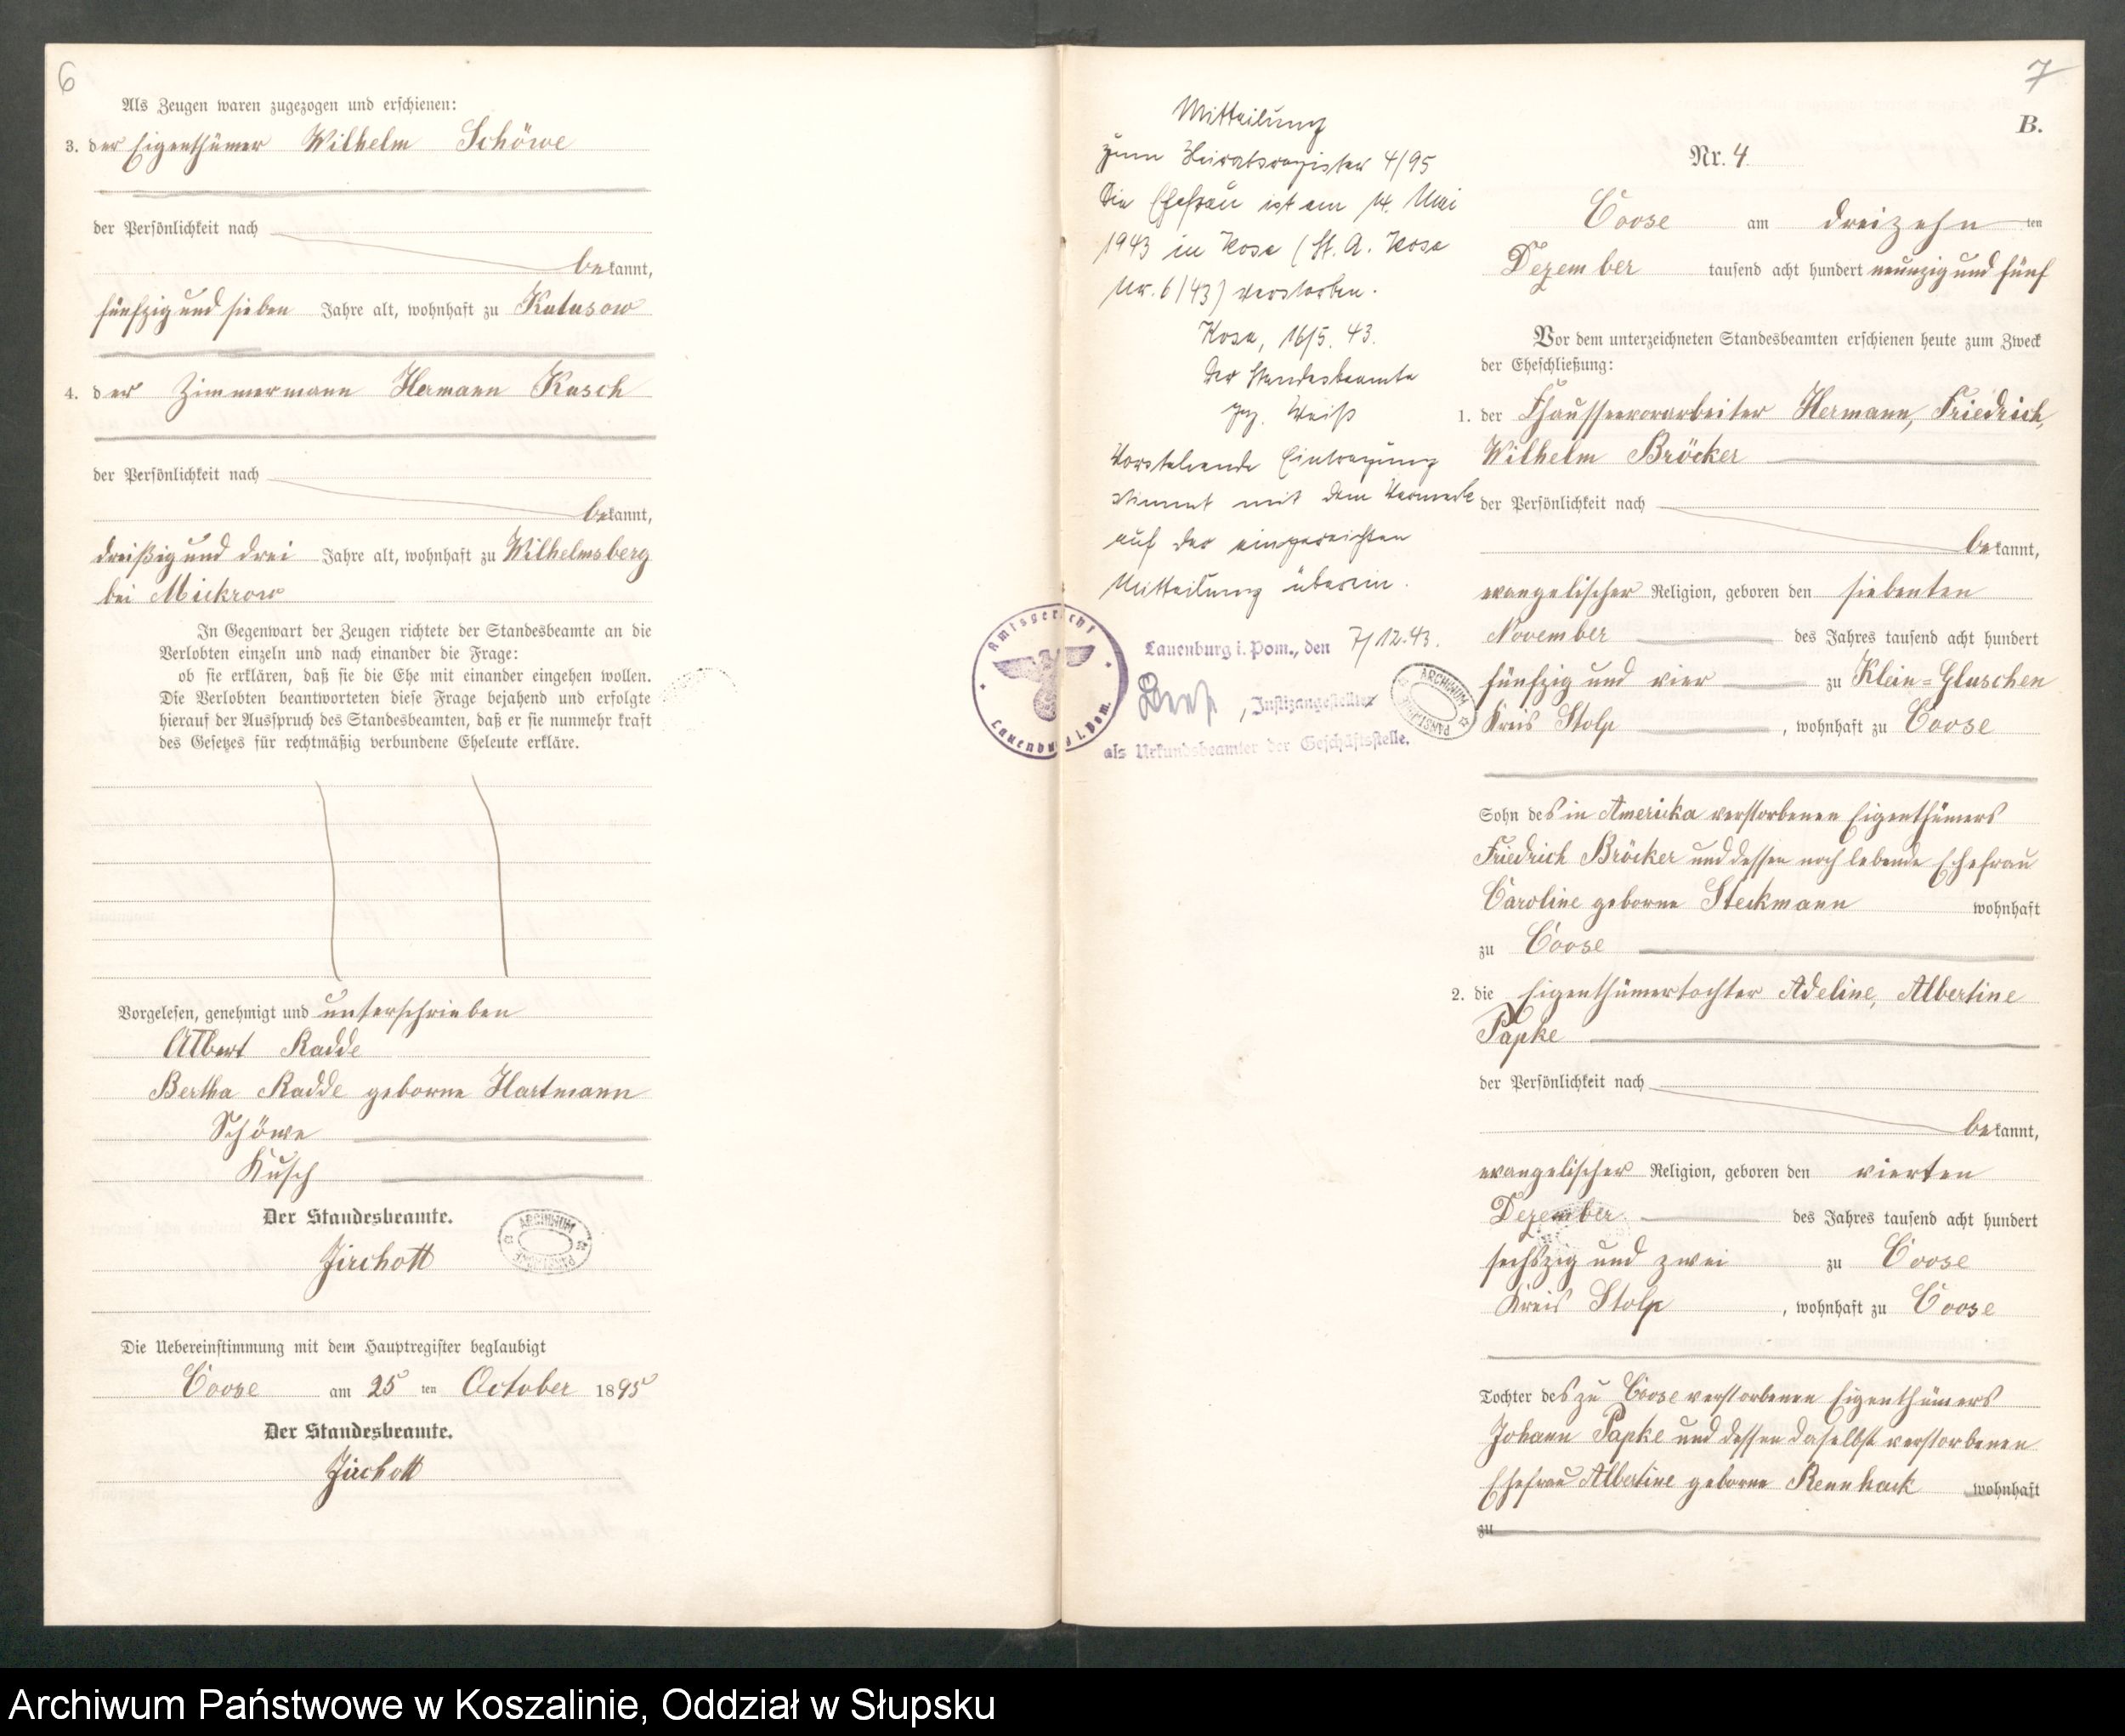 6
Als Zeugen waren zugezogen und erschienen:
3. der Eigenthümer Wilhelm Schöwe
der Persönlichkeit nach
bekannt,
fünfzig und sieben Jahre alt, wohnhaft zu Kutusow
4. der Zimmermann Hermann Kusch
der Persönlichkeit nach
bekannt,
dreißig und drei Jahre alt, wohnhaft zu Wilhelmsberg
bei Mickrow
In Gegenwart der Zeugen richtete der Standesbeamte an die
Verlobten einzeln und nach einander die Frage:
ob sie erklären, daß sie die Ehe mit einander eingehen wollen.
Die Verlobten beantworteten diese Frage bejahend und erfolgte
hierauf der Ausspruch des Standesbeamten, daß er sie nunmehr kraft
des Gesetzes für rechtmäßig verbundene Eheleute erkläre.
Vorgelesen, genehmigt und unterschrieben
Albert Radde
Bertha Radde geborne Hartmann
Schöwe
Kusch
Der Standesbeamte.
Jirchott
ARCHIWUM PAŃSTWOWE
Die Uebereinstimmung mit dem Hauptregister beglaubigt
Coose am 25 ten October 1895
Der Standesbeamte.
Jirchott
Mitteilung
zum Heiratsregister 4/95
Die Ehefrau ist am 14. Mai
1943 in Kose (St. A. Kose
Nr. 6/43) verstorben.
Kose, 16/5. 43.
Der Standesbeamte
gez. Weiß
Vorstehende Eintragung
stimmt mit dem Vermerk
auf der eingereichten
Mitteilung überein.
Amtsgericht
Lauenburg i. Pom.
Lauenburg i. Pom., den 7/12.43.
, Justizangestellter
als Urkundsbeamter der Geschäftsstelle.
ARCHIWUM PAŃSTWOWE
7
B.
Nr. 4
Coose am dreizehn ten
Dezember tausend acht hundert neunzig und fünf
Vor dem unterzeichneten Standesbeamten erschienen heute zum Zweck
der Eheschließung:
1. der Chausseevorarbeiter Hermann, Friedrich,
Wilhelm Bröcker
der Persönlichkeit nach
bekannt,
evangelischer Religion, geboren den siebenten
November des Jahres tausend acht hundert
fünfzig und vier zu Klein=Gluschen
Kreis Stolp , wohnhaft zu Coose
Sohn des in Amerika verstorbenen Eigenthümers
Friedrich Bröcker und dessen noch lebende Ehefrau
Caroline geborne Steckmann wohnhaft
zu Coose
2. die Eigenthümertochter Adeline, Albertine
Papke
der Persönlichkeit nach
bekannt,
evangelischer Religion, geboren den vierten
Dezember des Jahres tausend acht hundert
sechszig und zwei zu Coose
Kreis Stolp , wohnhaft zu Coose
Tochter des zu Coose verstorbenen Eigenthümers
Johann Papke und dessen daselbst verstorbenen
Ehefrau Albertine geborne Rennhack wohnhaft
zu
Archiwum Państwowe w Koszalinie, Oddział w Słupsku